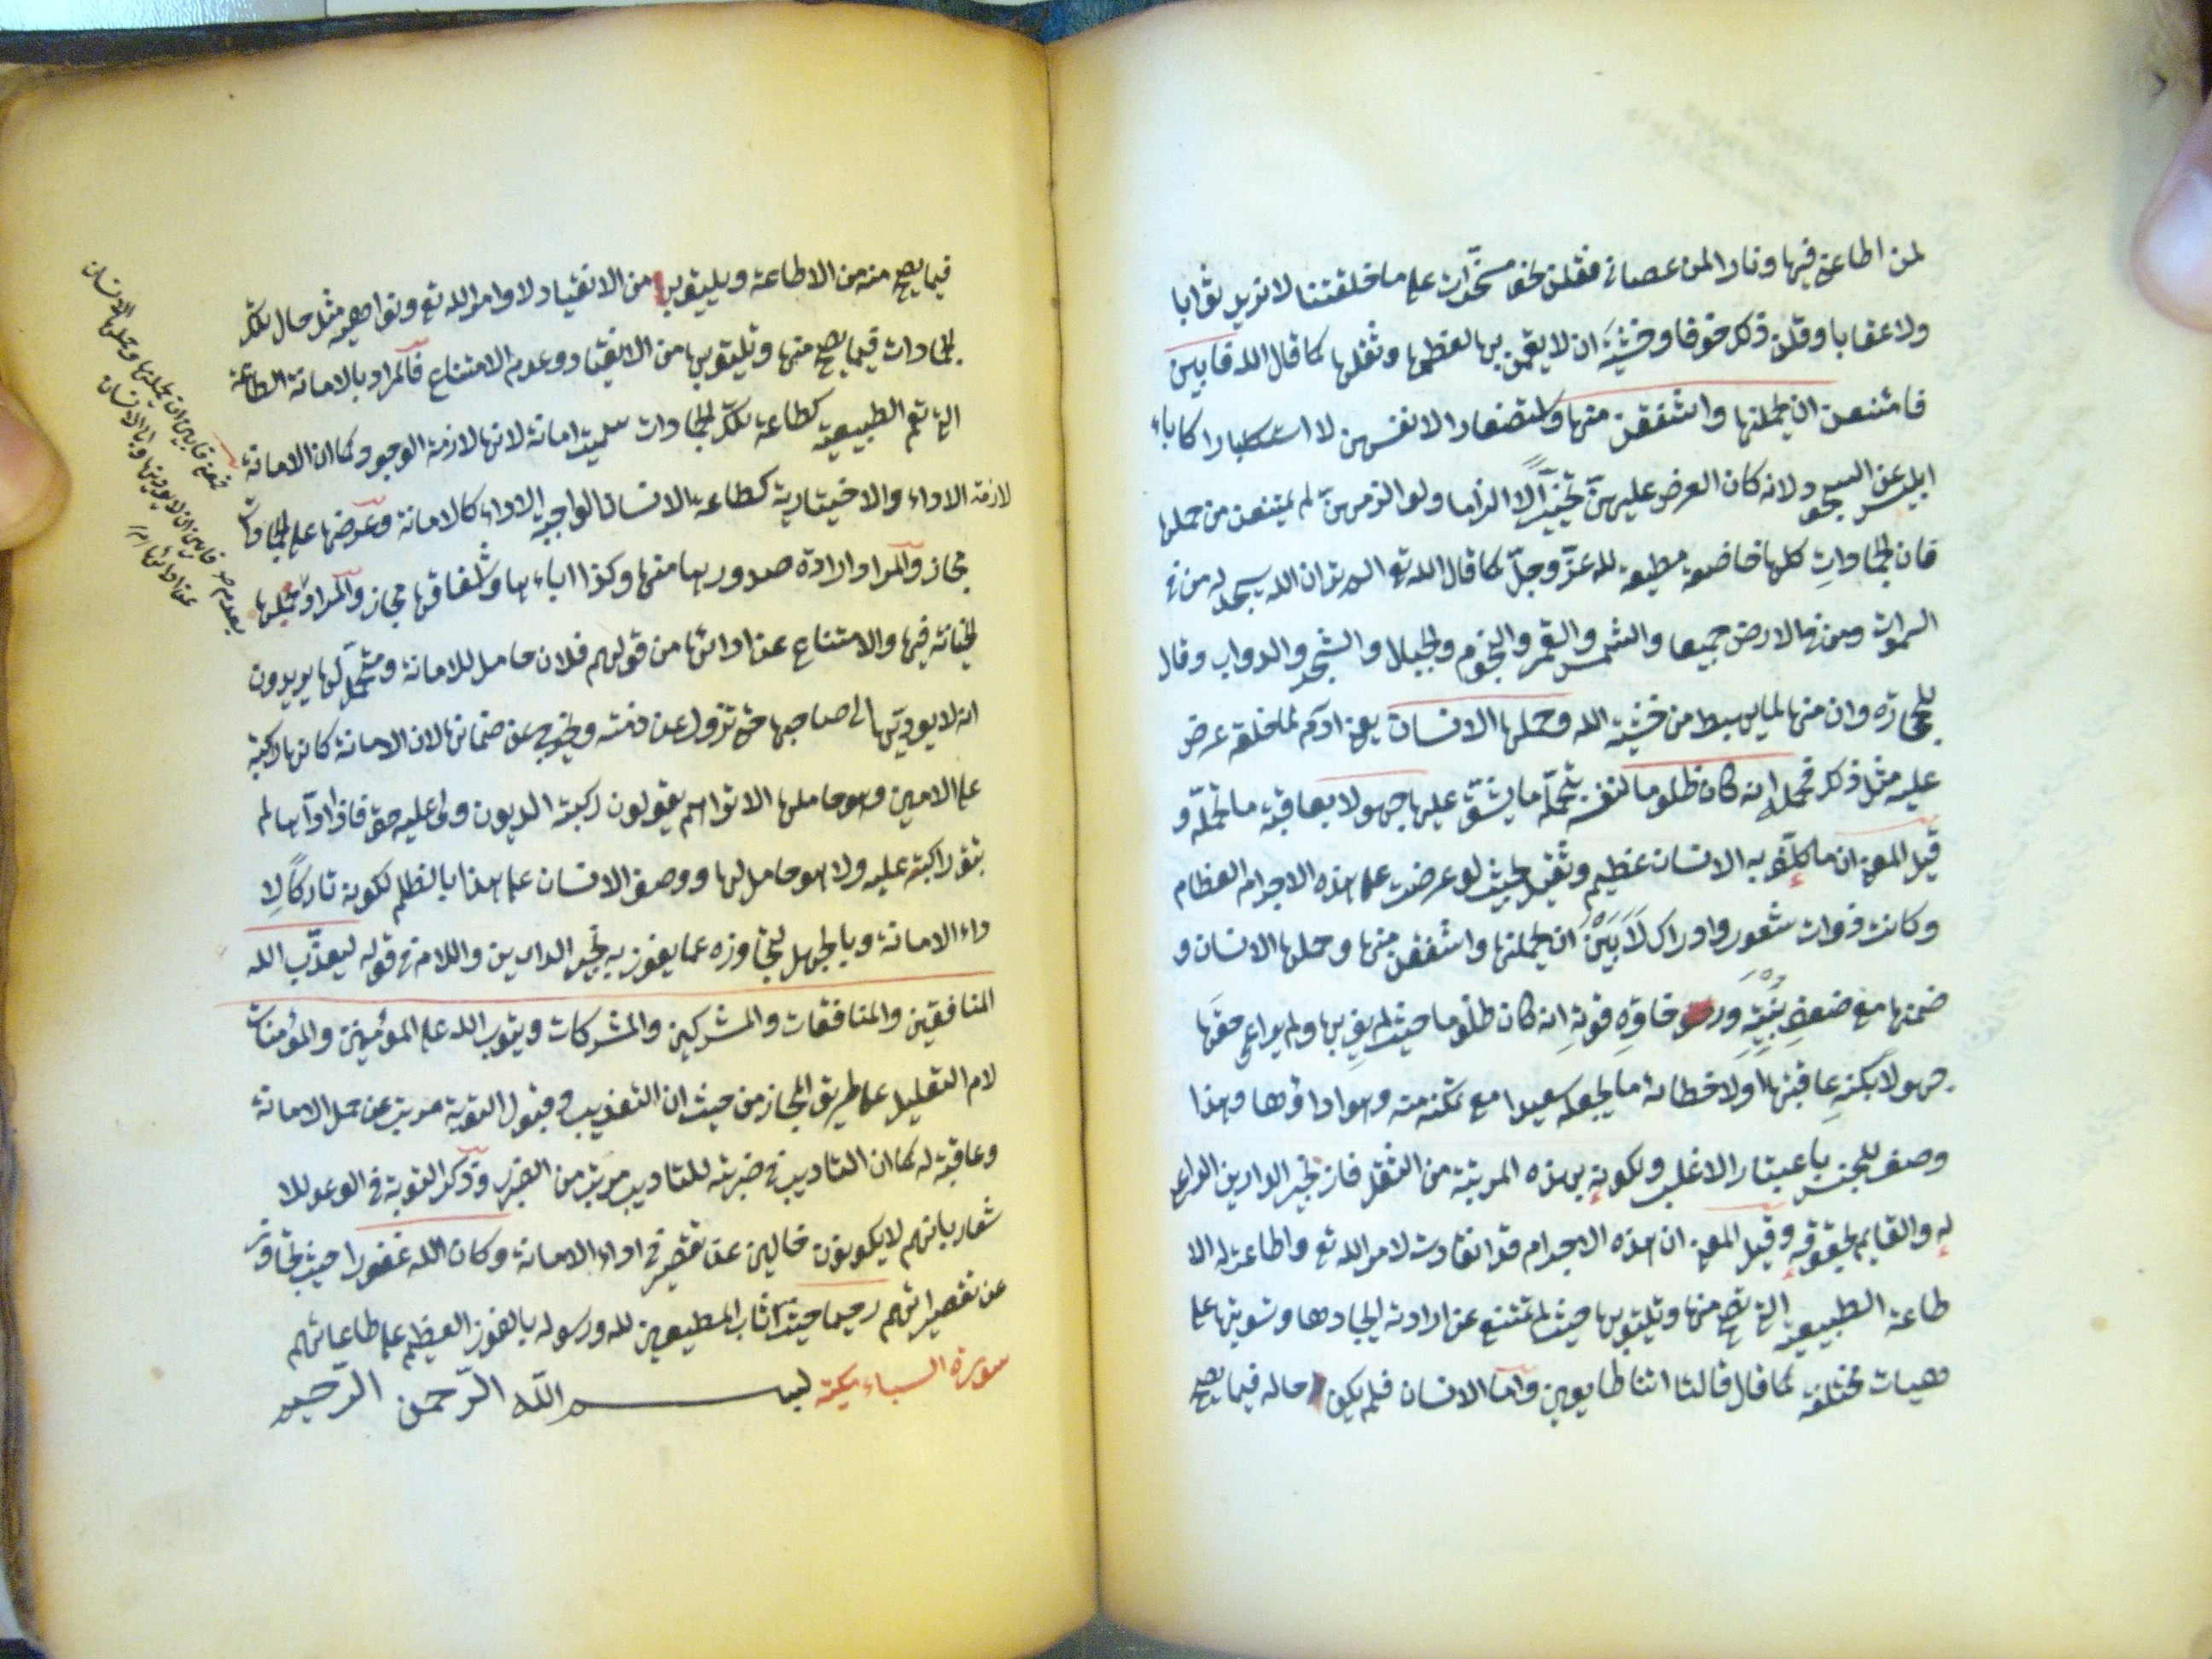 لمن اطاعنى فيها ونارا لمن عصانى فقلن نحن مسخّرات على ما خلقتنا لا نريد ثوابا
ولا عقابا وقلن ذلك خوفا وخشيَة ان لا يقمن بها لعظمها وثقلها كما قال الله فابين
فامتنعن ان يحملنها واشفقن منها واستصغارا لانفسهن لا استكبارا كاباء
ابليس عن السجود ولانه كان العرض عليهنّ تخييراً لا الزاما ولو الزمهنّ لم يمتنعن من حملها
فان الجمادات كلها خاضعة مطيعة لله عزّ وجلّ كما قال الله تع الم تر ان الله يسجد له من فى
السموات ومن فى الارض جميعا والشمس والقمر والنجوم والجبال والشجر والدواب وقال
للحجارة وان منها لما يهبط من خشية الله وحملها الانسان يعنى ادم لما خلقه عرض
عليه مثل ذلك فحمله انه كان ظلوما لنفسه بتحمّله ما يشقّ عليها جهولا بعاقبة ما تحمّله و
قيل المعنى ان ما كلّف به الانسان عظيم وثقيل بحيث لو عرضت على هذه الاجرام العظام
وكانت ذوات شعور وادراك لَأَبَيْنَ ان يحملنها واشفقن منها وحملها الانسان و
ضمنها مع ضعفِ بُنْيَتِهِ ورخاوَةِ قوتهِ انه كان ظلوما حيث لم يفِ بها ولم يراعِ حقَها
جهولاً بكنهِ عاقبتها اولا خطائه ما يجعله سعيدا مع تمكنه منه وهو اداؤها وهذا
وصف للجنس باعتبار الاغلب ولكونه بهذه المرتبة من الثقل فاز بخير الدارين الراعى
له والقايم بحقوقه وقيل المعنى ان هذه الاجرام قد انقادت لامر الله تع واطاعت له الا
طاعة الطبيعية التى تصح منها وتليق بها حيث لم تمتنع عن ارادته ايجادها وتسويتها على
هيات مختلفة كما قال قالتا اتينا طايعين واما الانسان فلم يكن حاله فيما يصح
فيما يصح منه من الاطاعة ويليق به من الانقياد لاوامر الله تع ونواهيه مثل حال تلك
الجمادات فيما يصح منها وتليق بها من الانقياد وعدم الامتناع فالمراد بالامانة الطاعة
التى تعم الطبيعية كطاعة تلك الجمادات سميت امانة لانها لازمة الوجود كما ان الامانة
لازمة الاداء والاختيارية كطاعة الانسان الواجبة الاداء كالامانة وعرضها على الجمادات
مجاز والمراد ارادة صدورها منها وكذا اباءها واشفاقها مجاز والمراد بحملها
الخيانة فيها والامتناع عن ادائها من قولهم فلان حامل للامانة ومتحمّل لها يريدون
انه لا يوديها الى صاحبها حتى تزول عن ذمته ويخرج عن ضمانها لان الامانة كانها راكبة
على الامين وهو حاملها الا تراهم يقولون ركبته الديون ولى عليه حق فاذا اداها لم
تبق راكبة عليه ولا هو حامل لها ووصف الانسان على هذا بالظلم لكونه تاركاً لا
داء الامانة وبالجهل لتجاوزه عما يفوز به بخير الدارين واللام فى قوله ليعذّب الله
المنافقين والمنافقات والمشركين والمشركات ويتوب الله على المؤمنين والمؤمنات
لام التعليل على طريق المجاز من حيث ان التعذيب وقبول التوبة مرتب عن حمل الامانة
وعاقبة له كما ان التاديب فى ضربته للتاديب مرتب من الضرب وذكر التوبة فى الوعد للا
شعار بانهم لا يكونون خالين عن تقصير فى اداء الامانة وكان الله غفورا حيث تجاوز
عن تقصيراتهم رحيما حيث اثاب المطيعين لله ورسوله بالفوز العظيم على طاعاتهم
سورة السباء مكية بسم الله الرّحمن الرّحيم
فمعنى فابين ان يحملنها وحملها الانسان
بعدم فابين ان لا يودينها وابى الانسان